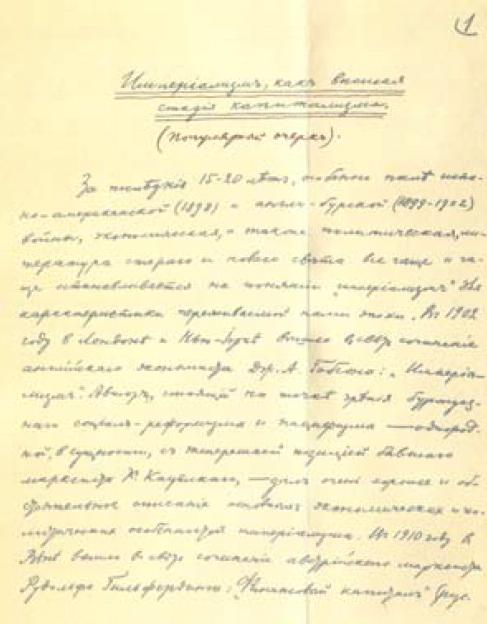 1
Имперіализмъ, какъ высшая
стадія капитализма.
(Популярный очеркъ).
За послѣднія 15-20 лѣтъ, особенно послѣ испа-
но-американской (1898) и англо-бурской (1899-1902)
войны, экономическая, а также политическая, ли-
тература стараго и новаго свѣта все чаще и ча-
ще останавливается на понятіи „имперіализмъ“ для
характеристики переживаемой нами эпохи. Въ 1902
году в Лондонѣ и Нью-Іоркѣ вышло в свѣтъ сочиненіе
англійскаго экономиста Дж. А. Гобсона: „Имперіа-
лизмъ“. Авторъ, стоящій на точкѣ зрѣнія буржуаз-
наго соціалъ-реформизма и пацифизма — однород-
ной, в сущности, съ теперешней позиціей бывшаго
марксиста К. Каутскаго, — далъ очень хорошее и об-
стоятельное описаніе основныхъ экономическихъ и по-
литическихъ особенностей имперіализма. Въ 1910 году в
Вѣнѣ вышло в свѣтъ сочиненіе австрійскаго марксиста
Рудольфа Гильфердинга: „Финансовый капиталъ“